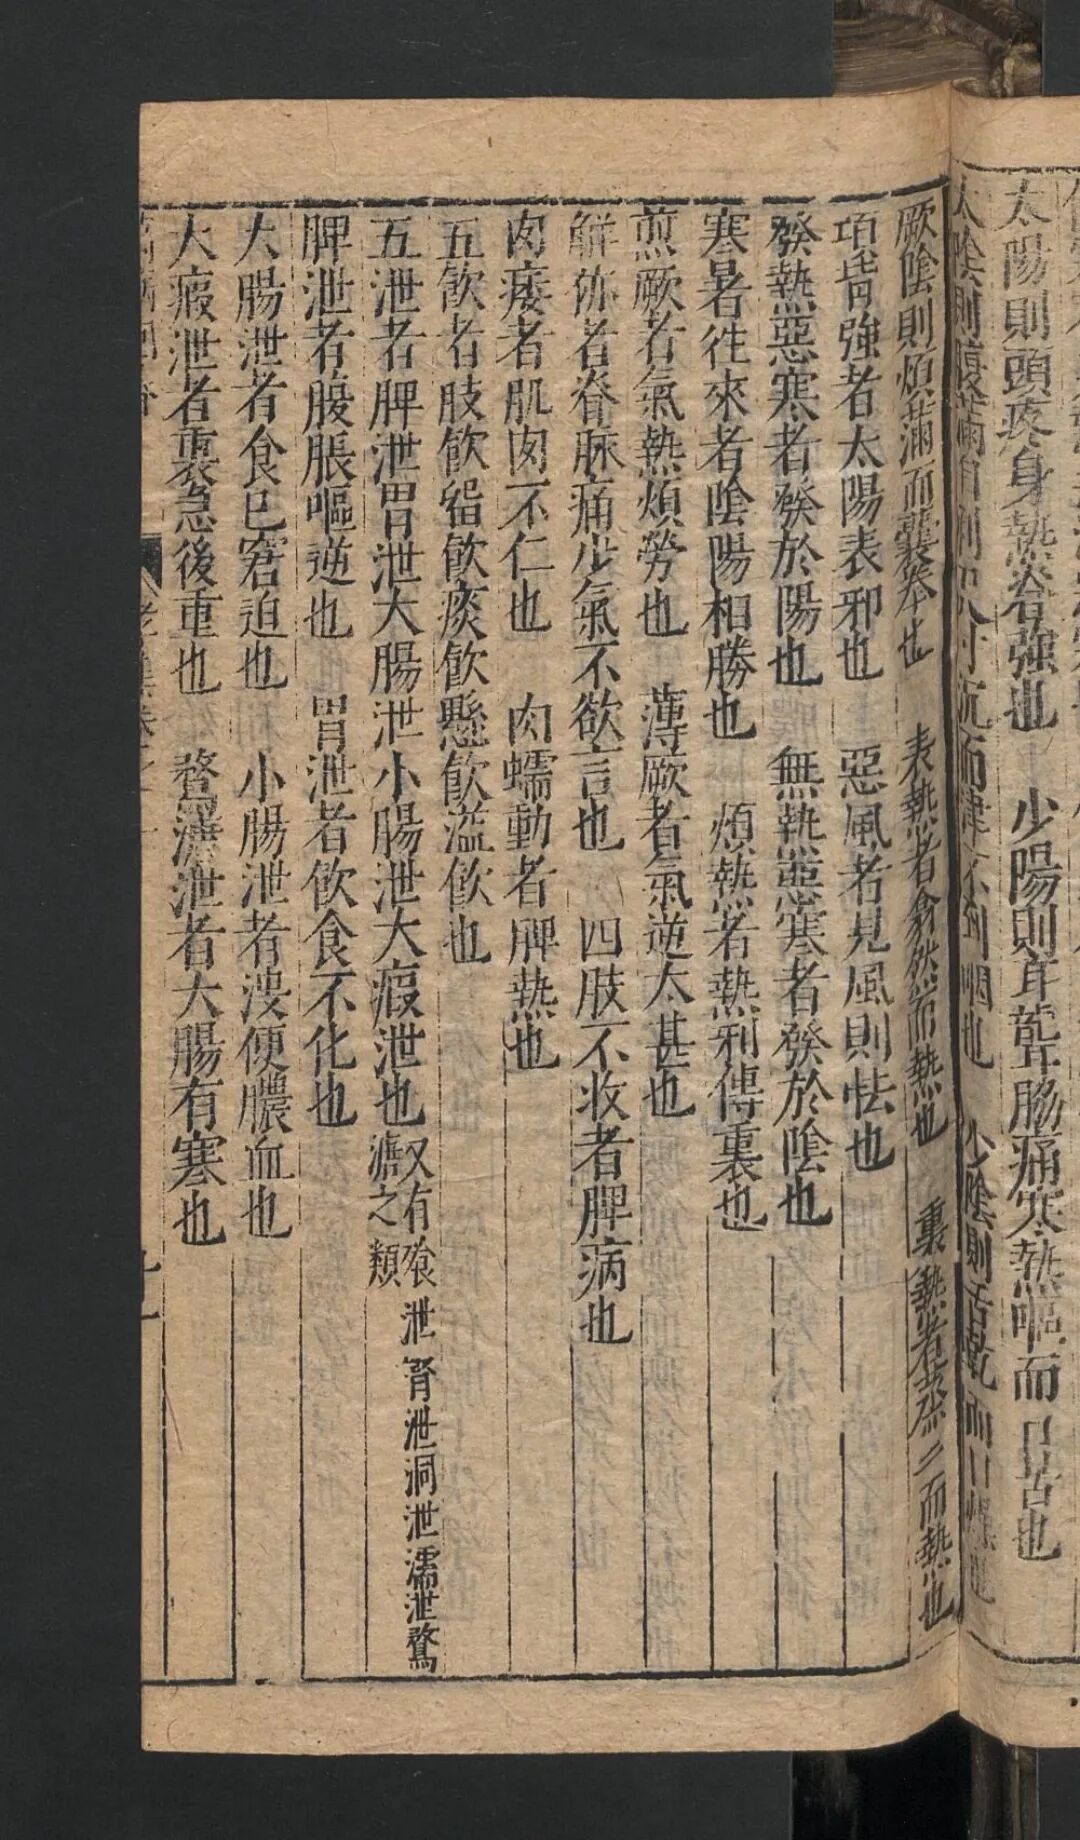 太陽則頭疼身熱脊強也　少陽則耳聾脇痛寒熱嘔而口苦也
太陰則腹滿自利　而津不到咽也　少陰則舌乾而口燥也
厥陰則煩滿而囊拳也　表熱者翕然而熱也　裏熱者蒸蒸而熱也
項背強者太陽表邪也　惡風者見風則怯也
發熱惡寒者發於陽也　無熱惡寒者發於陰也
寒暑往來者陰陽相勝也　煩熱者熱邪傳裏也
煎厥者氣熱煩勞也　薄厥者氣逆太甚也
解㑊者脊脉痛少氣不欲言也　四肢不收者脾病也
肉痿者肌肉不仁也　肉蠕動者脾熱也
五飲者肢飲留飲痰飲懸飲溢飲也
五泄者脾泄胃泄大腸泄小腸泄大瘕泄也又有飧泄腎泄洞泄濡泄鶩溏之類
脾泄者腹脹嘔逆也　胃泄者飲食不化也
大腸泄者食已窘迫也　小腸泄者溲便膿血也
大瘕泄者裏急後重也　鶩溏泄者大腸有寒也